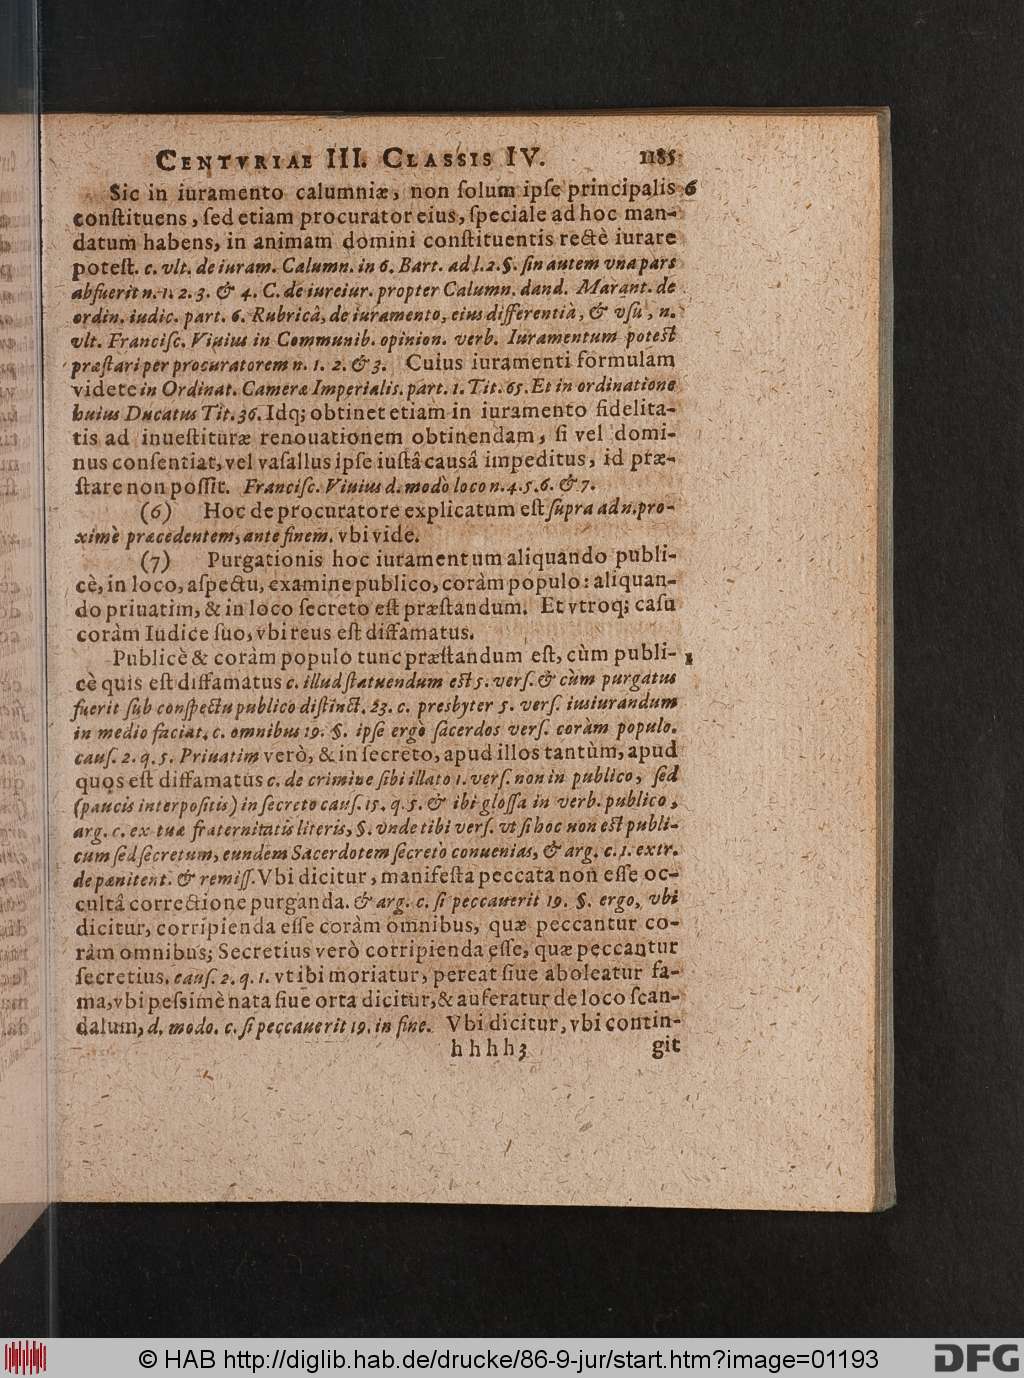 CENTVRIAE III. CLASSIS IV. 1185
Sic in iuramento calumniæ, non ſolum ipſe principalis 6
conſtituens, ſed etiam procurator eius, ſpeciale ad hoc man-
datum habens, in animam domini conſtituentis rectè iurare
poteſt. c. vlt. de iuram. Calumn. in 6. Bart. ad l. 2. §. ſin autem vna pars
abfuerit n. 1. 2. 3. & 4. C. de iureiur. propter Calumn. dand. Marant. de
ordin. iudic. part. 6. Rubricâ, de iuramento, eius differentiâ, & vſu, n.
vlt. Franciſc. Viuius in Communib. opinion. verb. Iuramentum potest
præſtari per procuratorem n. 1. 2. & 3. Cuius iuramenti formulam
videte in Ordinat. Cameræ Imperialis. part. 1. Tit. 65. Et in ordinatione
huius Ducatus Tit. 36. Idq; obtinet etiam in iuramento fidelita-
tis ad inueſtituræ renouationem obtinendam, ſi vel domi-
nus conſentiat, vel vaſallus ipſe iuſtâ causâ impeditus, id præ-
ſtare non poſſit. Franciſc. Viuius d. modò loco n. 4. 5. 6. & 7.
(6) Hoc de procuratore explicatum eſt ſupra ad n. pro-
ximè præcedentem, ante finem. vbi vide.
(7) Purgationis hoc iuramentum aliquando publi-
cè, in loco, aſpectu, examine publico, coràm populo: aliquan-
do priuatim, & in loco ſecreto eſt præſtandum. Et vtroq; caſu
coràm Iudice ſuo, vbi reus eſt diffamatus.
Publicè & coràm populo tunc præſtandum eſt, cùm publi- 1
cè quis eſt diffamatus c. illud ſtatuendum est 5. verſ. & cùm purgatus
fuerit ſub conſpectu publico diſtinct. 23. c. presbyter 5. verſ. iusiurandum
in medio faciat. c. omnibus 19. §. ipſe ergò ſacerdos verſ. coràm populo.
cauſ. 2. q. 5. Priuatim verò, & in ſecreto, apud illos tantùm, apud
quos eſt diffamatus c. de crimine ſibi illato 1. verſ. non in publico, ſed
(paucis interpoſitis) in ſecreto cauſ. 15. q. 5. & ibi gloſſa in verb. publico,
arg. c. ex tuæ fraternitatis literis, §. vnde tibi verſ. vt ſi hoc non est publi-
cum ſed ſecretum, eundem Sacerdotem ſecretò conuenias, & arg. c. 1. extr.
de pænitent. & remiſſ. Vbi dicitur, manifeſta peccata non eſſe oc-
cultâ correctione purganda. & arg. c. ſi peccauerit 19. §. ergo, vbi
dicitur, corripienda eſſe coràm omnibus, quæ peccantur co-
ràm omnibus; Secretius verò corripienda eſſe, quæ peccantur
ſecretius. cauſ. 2. q. 1. vt ibi moriatur, pereat ſiue aboleatur fa-
ma, vbi peſsimè nata ſiue orta dicitur, & auferatur de loco ſcan-
dalum, d. modo. c. ſi peccauerit 19. in fine. Vbi dicitur, vbi contin-
hhhhh 3 git
© HAB http://diglib.hab.de/drucke/86-9-jur/start.htm?image=01193
DFG